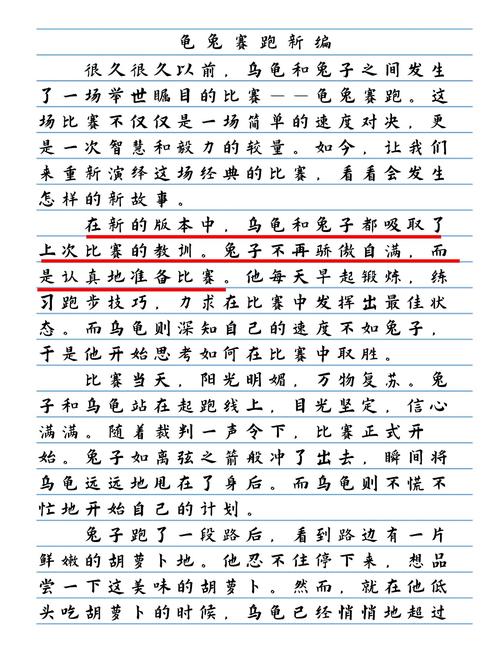 龟兔赛跑新编
很久很久以前，乌龟和兔子之间发生
了一场举世瞩目的比赛——龟兔赛跑。这
场比赛不仅仅是一场简单的速度对决，更
是一次智慧和毅力的较量。如今，让我们
来重新演绎这场经典的比赛，看看会发生
怎样的新故事。
在新的版本中，乌龟和兔子都吸取了
上次比赛的教训。兔子不再骄傲自满，而
是认真地准备比赛。他每天早起锻炼，练
习跑步技巧，力求在比赛中发挥出最佳状
态。而乌龟则深知自己的速度不如兔子，
于是他开始思考如何在比赛中取胜。
比赛当天，阳光明媚，万物复苏。兔
子和乌龟站在起跑线上，目光坚定，信心
满满。随着裁判一声令下，比赛正式开
始。兔子如离弦之箭般冲了出去，瞬间将
乌龟远远地甩在了身后。而乌龟则不慌不
忙地开始自己的计划。
兔子跑了一段路后，看到路边有一片
鲜嫩的胡萝卜地。他忍不住停下来，想品
尝一下这美味的胡萝卜。然而，就在他低
头吃胡萝卜的时候，乌龟已经悄悄地超过